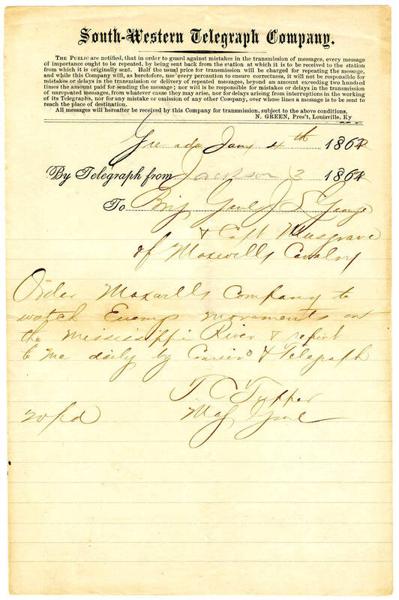 South-Western Telegraph Company.
The Public are notified, that in order to guard against mistakes in the transmission of messages, every message
of importance ought to be repeated, by being sent back from the station at which it is to be received to the station
from which it is originally sent. Half the usual price for transmission will be charged for repeating the message,
and while this Company will, as heretofore, use every precaution to ensure correctness, it will not be responsible for
mistakes or delays in the transmission or delivery of repeated messages, beyond an amount exceeding two hundred
times the amount paid for sending the message; nor will it be responsible for mistakes or delays in the transmission
of unrepeated messages, from whatever cause they may arise, nor for delays arising from interruptions in the working
of its Telegraphs, nor for any mistake or omission of any other Company, over whose lines a message is to be sent to
reach the place of destination.
All messages will hereafter be received by this Company for transmission, subject to the above conditions.
N. GREEN, Pres't, Louisville, Ky
Grenada Jany 4th 1864
By Telegraph from Jackson 3 1864
To Brig Genl J Z George
& Capt Musgrave
of Maxwells Cavalry
Order Maxwells Company to
watch Enemys movements on
the Mississippi River & report
to me daily by Courier & Telegraph
T C Tupper
Maj Genl
20/pd